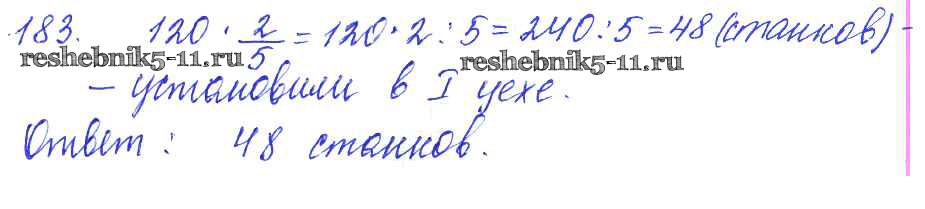 183. 120 · 2/5 = 120 · 2 : 5 = 240 : 5 = 48 (станков) -
reshebnik5-11.ru reshebnik5-11.ru
- установили в I цехе.
Ответ: 48 станков.